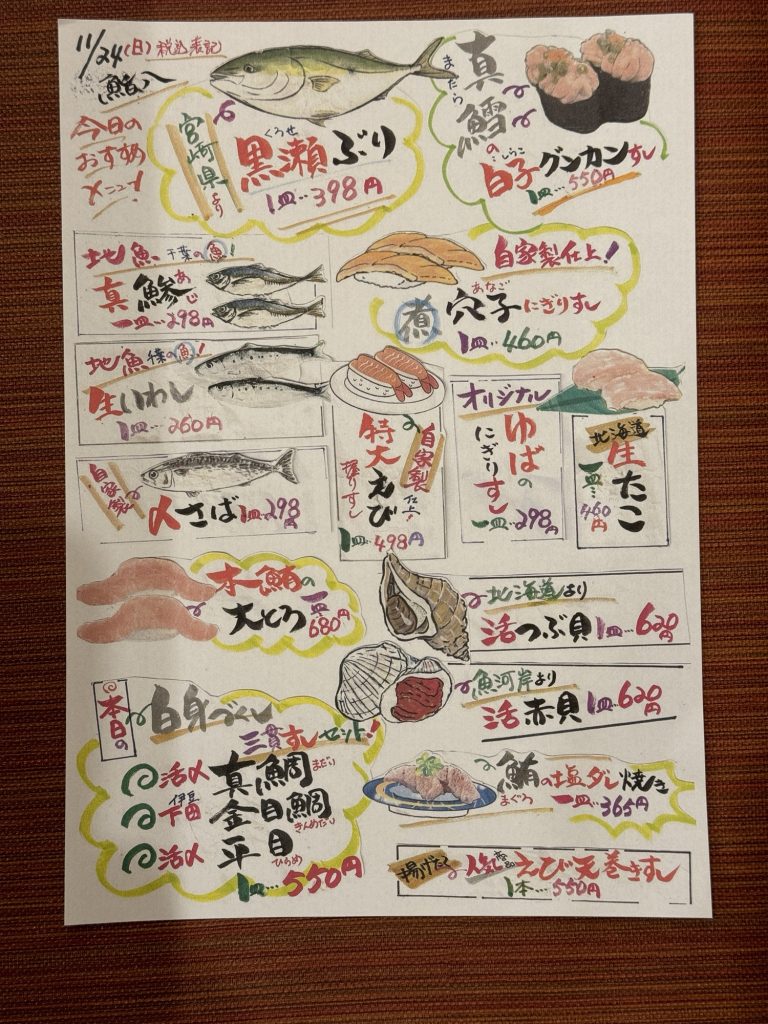 11/24(日)税込表記
鮨八
今日の
おすすめ
メニュー!
宮崎県より
くろせ
黒瀬ぶり
1皿…398円
まだら
真鱈の
しらこ
白子グンカンすし
1皿…550円
地魚 千葉の魚!
真鯵
あじ
一皿…298円
自家製仕上!
あなご
煮穴子にぎりすし
1皿…460円
地魚 千葉の魚!
生いわし
1皿…260円
自家製
〆さば 1皿…298円
自家製仕上!
特大えび
握りすし
1皿…498円
オリジナル
ゆばの
にぎりすし
一皿…298円
北海道
生たこ
一皿…460円
本鮪の
大とろ 一皿680円
北海道より
活つぶ貝 1皿…620円
魚河岸より
活赤貝 1皿…620円
本日の
白身づくし
三貫すしセット!
活〆 真鯛 まだい
伊豆下田 金目鯛 きんめだい
活〆 平目 ひらめ
1皿…550円
鮪の塩ダレ焼き
まぐろ
一皿…365円
揚げたて 人気商品 えび天巻きすし
1本…550円